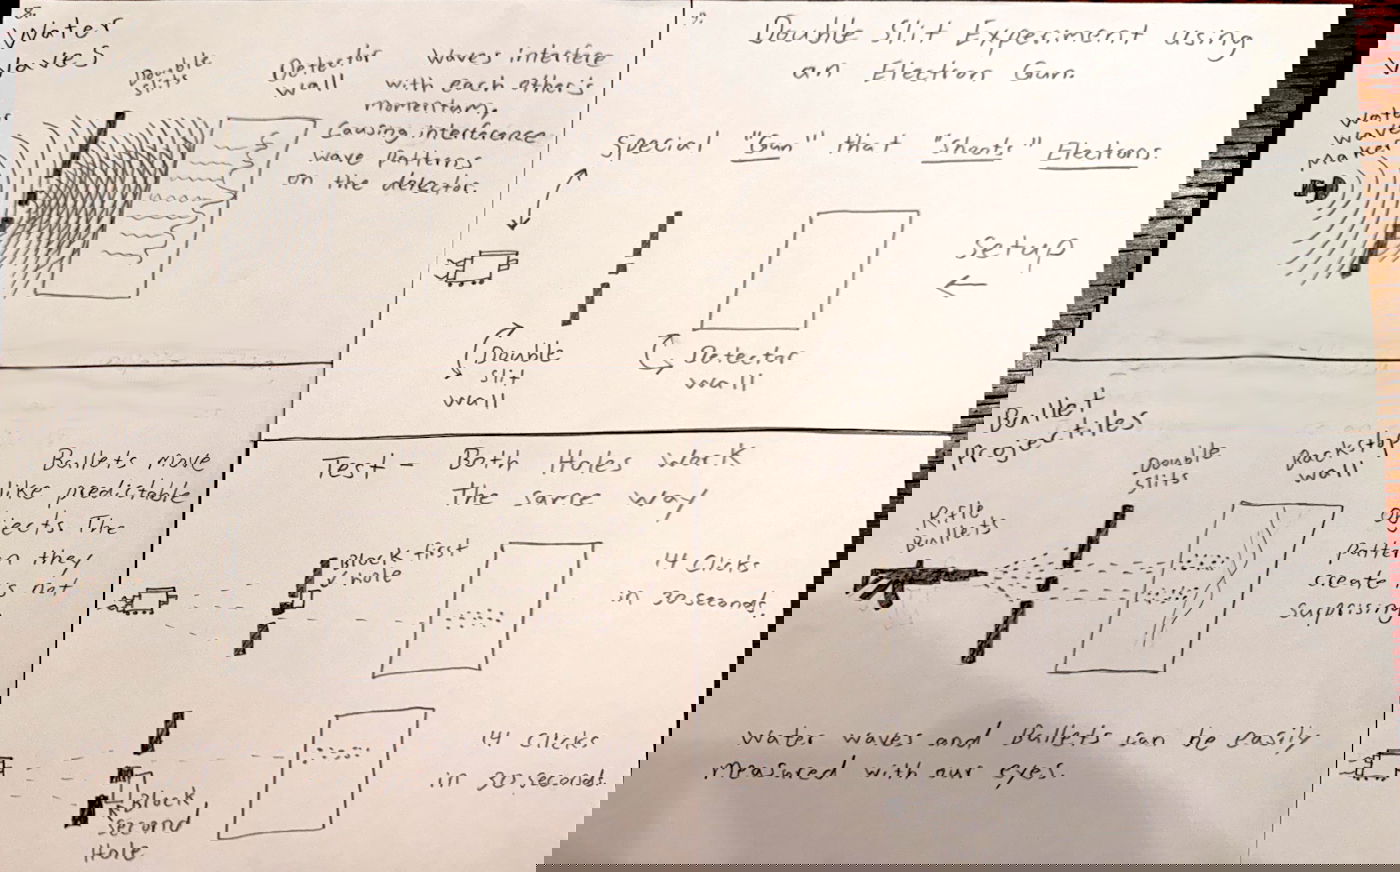 8.
Water
Waves
Double
Slits
Detector
Wall
Waves interfere
with each other's
momentum,
Causing interference
wave patterns
on the detector.
9.
Double Slit Experiment using
an Electron Gun.
Special "Gun" that "Shoots" Electrons.
Setup
Double
Slit
Wall
Detector
Wall
Water
Wave
Maker
Bullets move
like predictable
The
they
is not
Test - Both Holes Work
The same way
Block first
hole
14 Clicks
in 30 seconds.
Block
Second
Hole
14 Clicks
in 30 seconds.
Bullet
Projectiles
Rifle
Bullets
Double
Slits
Backstop
Wall
create
surprising
Water waves and Bullets can be easily
measured with our eyes.